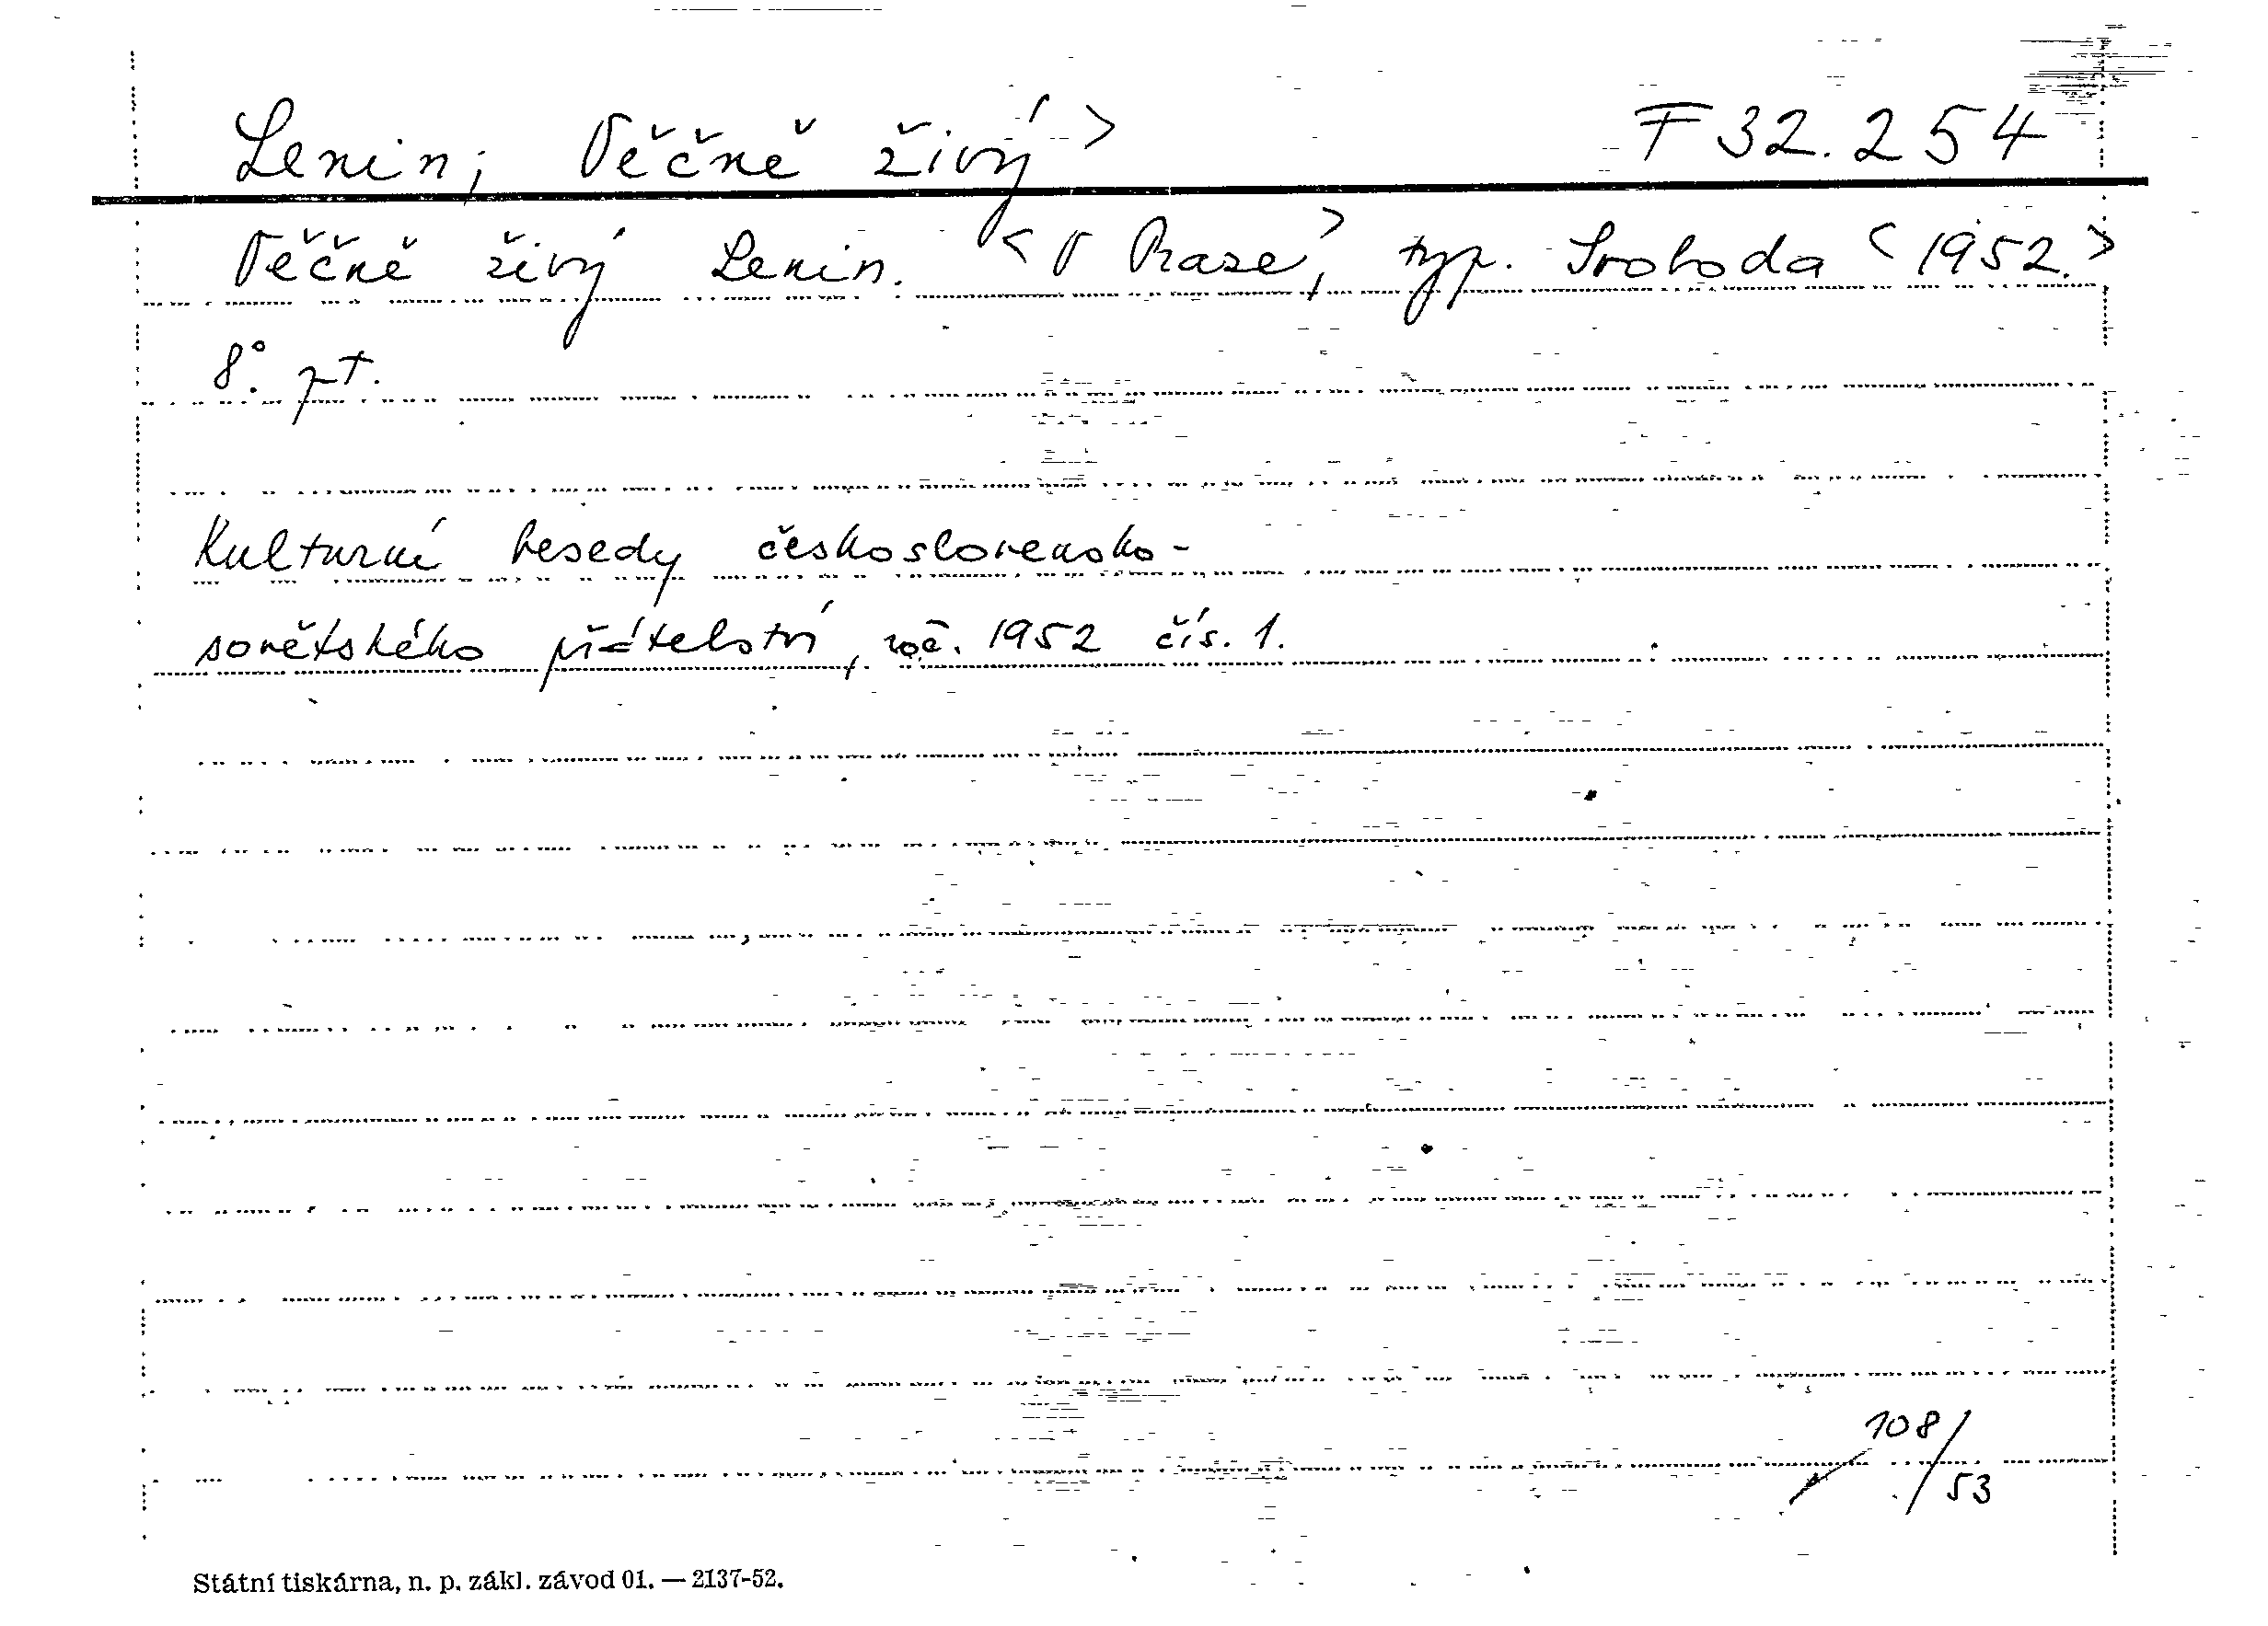 Lenin; Věčně živý > F 32.254
Věčně živý Lenin. < V Praze >, typ. Svoboda < 1952. >
8°. pt.
Kulturní besedy československo-
sovětského přátelství, roč. 1952 čís. 1.
108/53
Státní tiskárna, n. p. zákl. závod 01. — 2137-52.